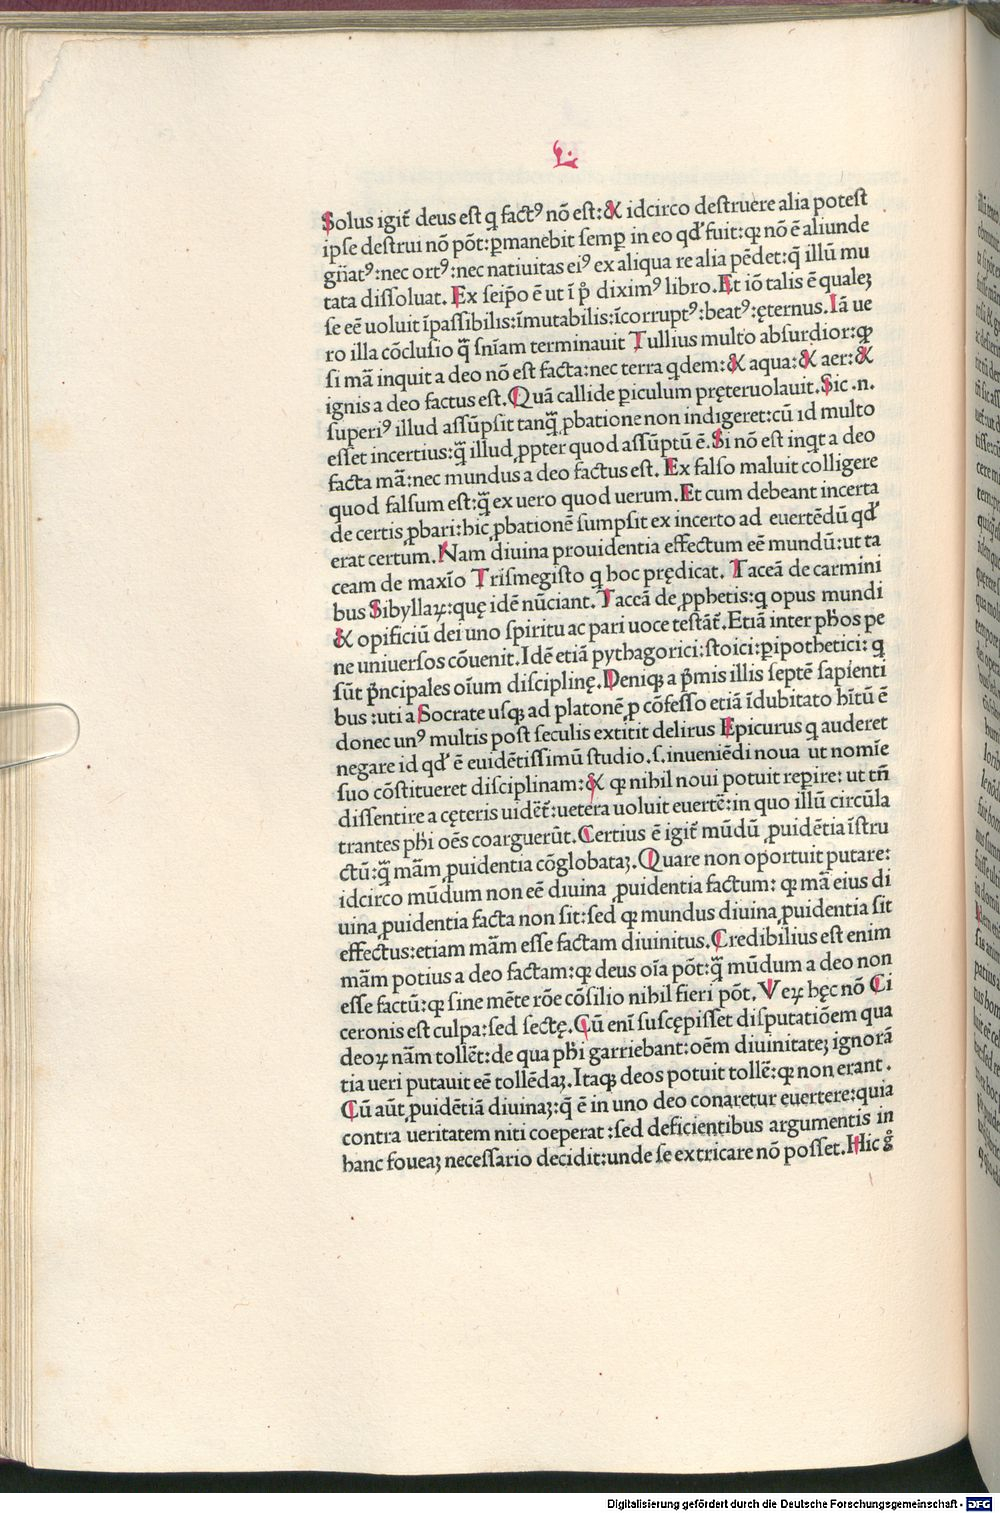 L.
Solus igit̃ deus est q fact⁹ nō est:& idcirco destruere alia potest
ipse destrui nō pōt:ꝑmanebit semꝑ in eo qd' fuit:ꝙ nō ē aliunde
gn̄at⁹:nec ort⁹:nec natiuitas ei⁹ ex aliqua re alia pēdet:q̄ illū mu
tata dissoluat. Ex seip̄o ē ut ī pͦ diximꝰ libro.Et iō talis ē qualeꝫ
se eē uoluit īpassibilis:īmutabilis:īcorrupt⁹:beat⁹:ęternus.Iā ue
ro illa cōclusio q̄ sn̄iam terminauit Tullius multo absurdior:ꝙ
si mā inquit a deo nō est facta:nec terra qdem:& aqua:& aer:&
ignis a deo factus est.Quā callide piculum pręteruolauit.Sic .n.
superi⁹ illud assūpsit tanq̄ ꝓbatione non indigeret:cū id multo
esset incertius:q̄ illud ꝓpter quod assūptū ē.Si nō est inqt a deo
facta mā:nec mundus a deo factus est. Ex falso maluit colligere
quod falsum est:q̄ ex uero quod uerum.Et cum debeant incerta
de certis ꝓbari:hic ꝓbationē sumpsit ex incerto ad euertēdū qd'
erat certum.Nam diuina prouidentia effectum eē mundū:ut ta
ceam de maxīo Trismegisto q hoc prędicat. Taceā de carmini
bus Sibyllaꝝ:quę idē nūciant.Taceā de ꝓphetis:q opus mundi
& opificiū dei uno spiritu ac pari uoce testāt̃.Etiā inter ph̄os pe
ne uniuersos cōuenit.Idē etiā pythagorici:stoici:ꝑipothetici: q
sūt p̄ncipales oīum disciplinę.Deniqꝫ a p̄mis illis septē sapienti
bus :uti a Socrate usqꝫ ad platonē ꝓ cōfesso etiā īdubitato hītū ē
donec un⁹ multis post seculis extitit delirus Epicurus q auderet
negare id qd' ē euidētissimū studio.s.inueniēdi noua ut nomīe
suo cōstitueret disciplinam:& ꝙ nihil noui potuit repire: ut tn̄
dissentire a cęteris uidēt̃:uetera uoluit euertē:in quo illū circūla
trantes ph̄i oēs coarguerūt.Certius ē igit̃ mūdū ꝓuidētia īstru
ctū:q̄ mām ꝓuidentia cōglobataꝫ.Quare non oportuit putare:
idcirco mūdum non eē diuina ꝓuidentia factum: ꝙ mā eius di
uina ꝓuidentia facta non sit:sed ꝙ mundus diuina ꝓuidentia sit
effectus:etiam mām esse factam diuinitus.Credibilius est enim
mām potius a deo factam:ꝙ deus oīa pōt:q̄ mūdum a deo non
esse factū:ꝙ sine mēte rōe cōsilio nihil fieri pōt.Veꝝ hęc nō Ci
ceronis est culpa:sed sectę.Cū enī suscępisset disputatiōem qua
deoꝝ nām tollēt:de qua ph̄i garriebant:oēm diuinitateꝫ ignorā
tia ueri putauit eē tollēdaꝫ.Itaqꝫ deos potuit tollē:ꝙ non erant.
Cū aūt ꝓuidētiā diuinaꝫ:q̄ ē in uno deo conaretur euertere:quia
contra ueritatem niti coeperat :sed deficientibus argumentis in
hanc foueaꝫ necessario decidit:unde se extricare nō posset.Hic gͦ
Digitalisierung gefördert durch die Deutsche Forschungsgemeinschaft - DFG